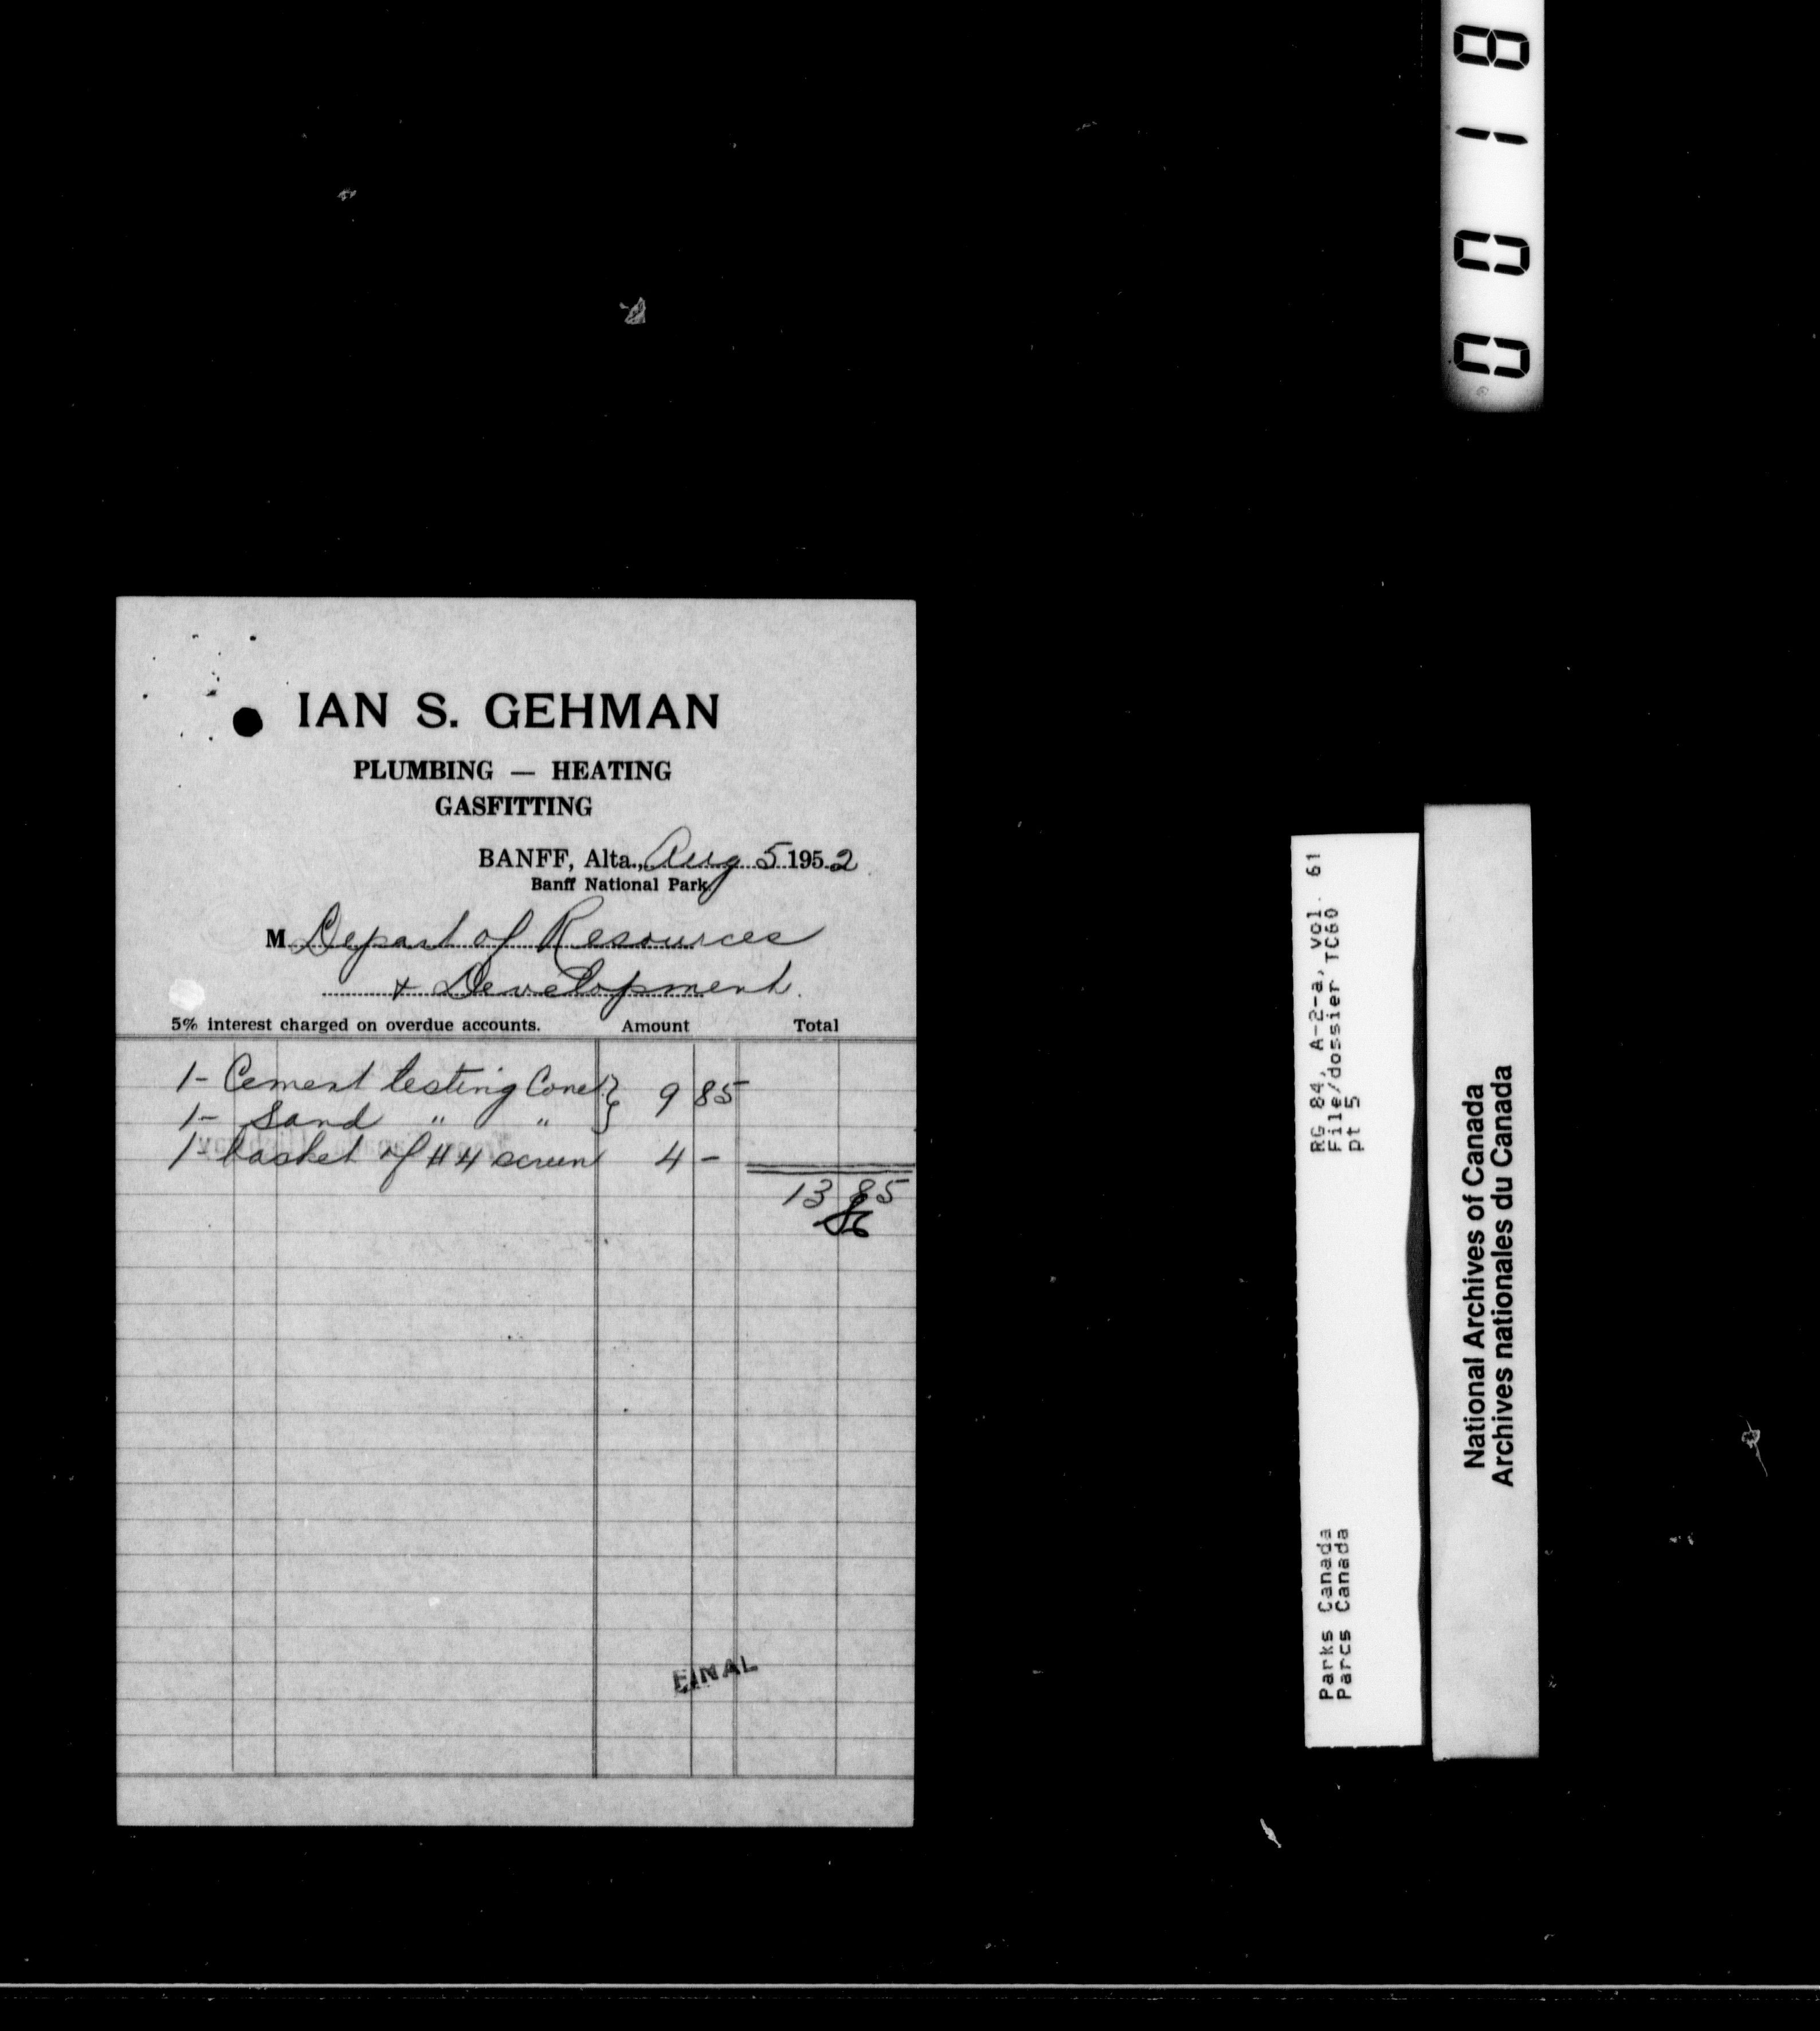 IAN S. GEHMAN
PLUMBING — HEATING
GASFITTING
BANFF, Alta., Aug 5 1952
Banff National Park
M Depart of Resources
+ Development.
5% interest charged on overdue accounts. Amount Total
1- Cement testing Cone } 9 85
1- Sand " "
1- basket of #4 screen 4 -
13 85
FINAL
0018
RG 84, A-2-a, vol. 61
File/dossier TC60
pt 5
Parks Canada
Parcs Canada
National Archives of Canada
Archives nationales du Canada